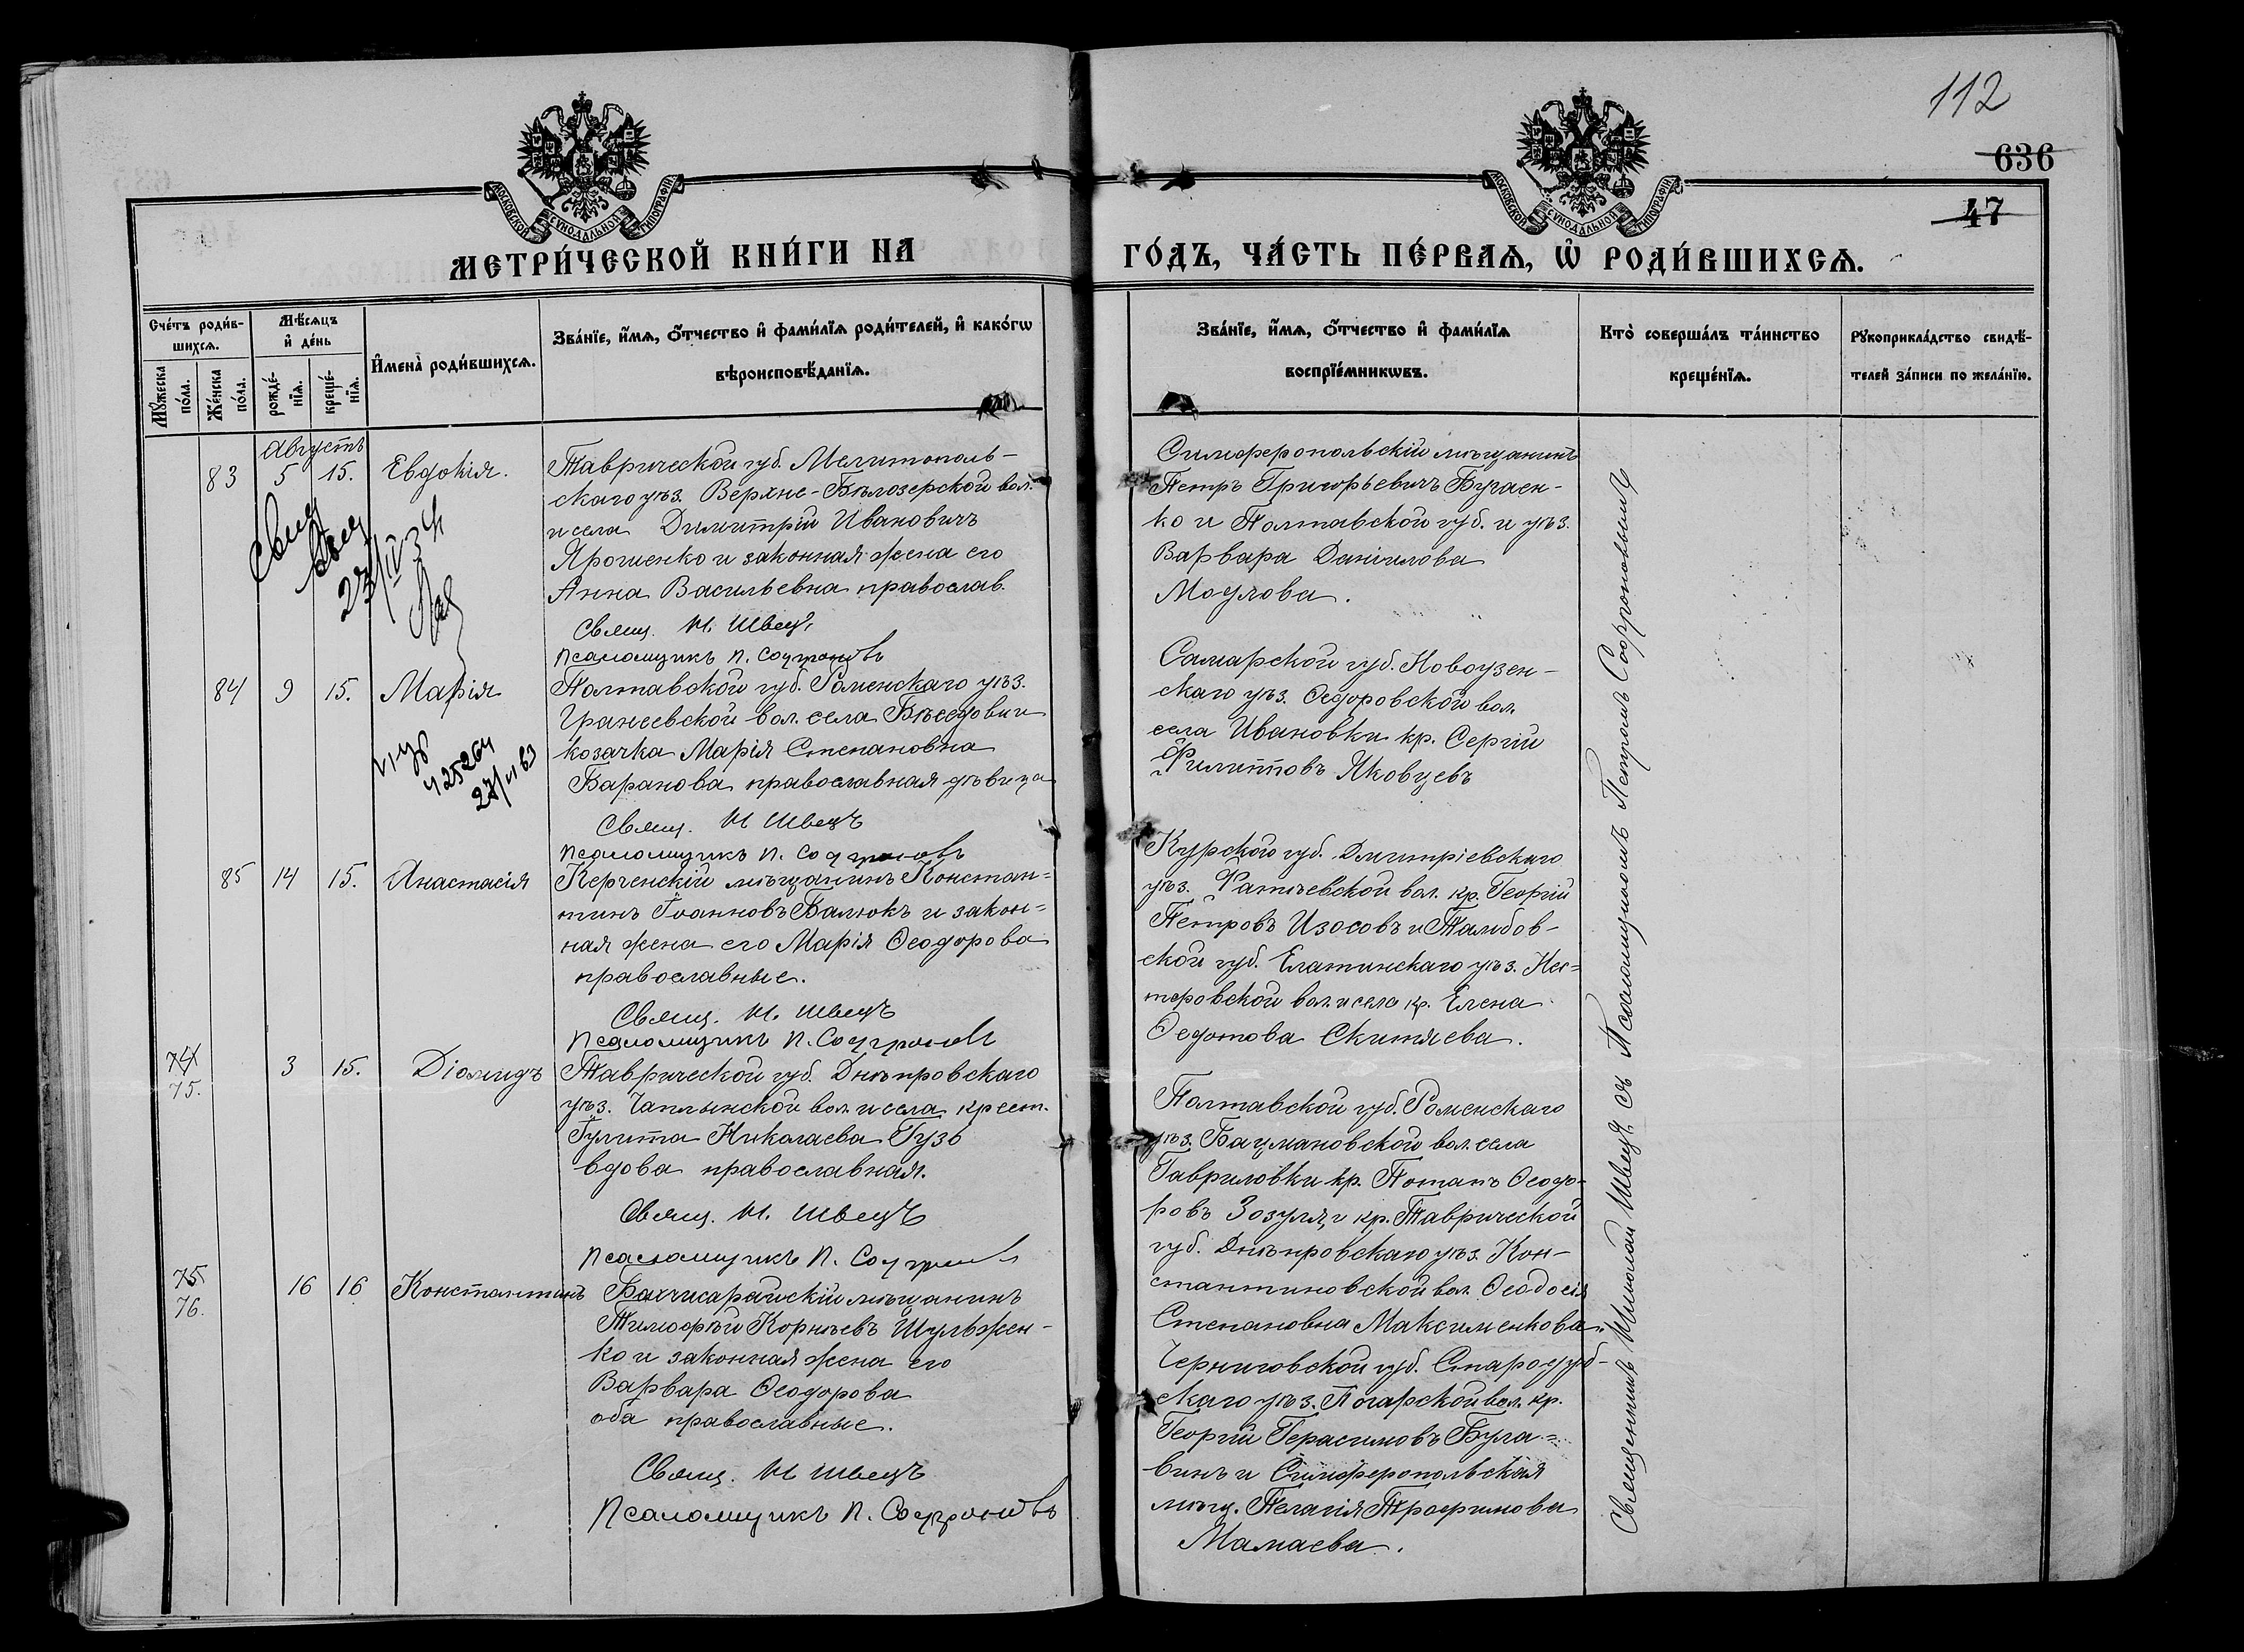 112
636
47
МОСКОВСКОЙ СѴНОДАЛЬНОЙ ТИПОГРАФІИ.
МОСКОВСКОЙ СѴНОДАЛЬНОЙ ТИПОГРАФІИ.
МЕТРИ́ЧЕСКОЙ КНИ́ГИ НА ГО́ДЪ, ЧА́СТЬ ПЕ́РВАѦ, Ѡ҆ РОДИ́ВШИХСѦ.
Сче́тъ роди́в-
шихсѧ.
Мꙋ́жеска
по́ла.
Же́нска
по́ла.
Мѣ́сѧцъ
и҆ де́нь
рожде́-
нїѧ.
креще́-
нїѧ.
И҆мена̀ роди́вшихсѧ.
Зва́нїе, и҆́мѧ, ѻ҆́тчество и҆ фами́лїѧ роди́телей, и҆ како́гѡ
вѣроисповѣ́данїѧ.
Зва́нїе, и҆́мѧ, ѻ҆́тчество и҆ фами́лїѧ
воспрїе́мникѡвъ.
Кто̀ соверша́лъ та́инство
креще́нїѧ.
Рꙋкоприкла́дство свидѣ́-
телей за́писи по жела́нїю.
Августъ
83 5 15. Евдокія.
Таврической губ. Мелитополь-
скаго уѣз. Верхне-Бѣлозерской вол.
и села Димитрій Ивановичъ
Ярошенко и законная жена его
Анна Васильевна православ.
Свящ. Н. Швецъ
Псаломщикъ П. Софроновъ
Симферопольскій мѣщанинъ
Петръ Григорьевичъ Бугаен-
ко и Полтавской губ. и уѣз.
Варвара Даніилова
Модлова.
84 9 15. Марія
25264
Полтавской губ. Роменскаго уѣз.
вол. села
козачка Марія Степановна
Баранова православная дѣвица
Свящ. Н Швецъ
Псаломщикъ П. Софроновъ
Самарской губ. Новоузен-
скаго уѣз. Ѳедоровской вол.
села Ивановки кр. Сергій
Филипповъ Яковцевъ
85 14 15. Анастасія
Керченскій мѣщанинъ Констан=
тинъ Іоанновъ Балюкъ и закон=
ная жена его Марія Ѳеодорова
православные.
Свящ. Н. Швецъ
Псаломщикъ П. Софроновъ
Курской губ. Дмитріевскаго
уѣз. вол. кр. Георгій
Петровъ Изосовъ и Тамбов-
ской губ. Елатинскаго уѣз. Нес=
теровской вол. и села кр. Елена
Ѳедотова Скитяева.
74
75.
3 15. Діомидъ
Таврической губ. Днѣпровскаго
уѣз. Чаплынской вол. и села крест.
Іулитта Николаева Гузь
вдова православная.
Свящ. Н. Швецъ
Псаломщикъ П. Софроновъ
Полтавской губ. Роменскаго
уѣз. Бацмановской вол. села
Гавриловки кр. Потапъ Ѳеодо-
ровъ Зозуля, и кр. Таврической
губ. Днѣпровскаго уѣз. Кон-
стантиновской вол. Ѳеодосія
Степановна Максименкова.
75
76.
16 16 Константинъ
Бахчисарайскій мѣщанинъ
Тимофѣй Корнѣевъ Шульжен-
ко и законная жена его
Варвара Ѳеодорова
оба православные.
Свящ. Н Швецъ
Псаломщикъ П. Софроновъ
Черниговской губ. Стародуб-
скаго уѣз. Погарской вол. кр.
Георгій Герасимовъ Була=
винъ и Симферопольская
мѣщ. Пелагія Трофимова
Мамаева.
Священникъ Николай Швецъ съ Псаломщикомъ Петромъ Софроновымъ